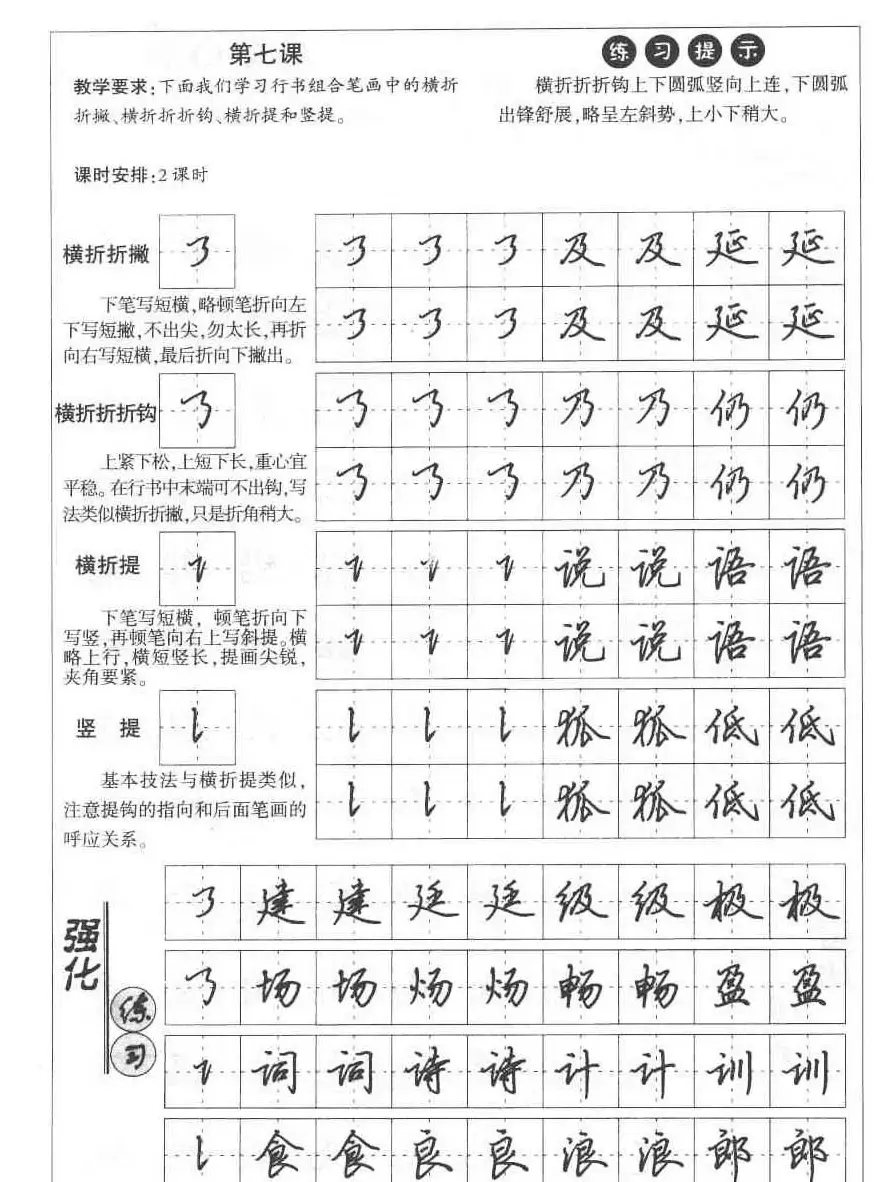 第七课
教学要求:下面我们学习行书组合笔画中的横折
折撇、横折折折钩、横折提和竖提。
课时安排:2课时
练习提示
横折折折钩上下圆弧竖向上连,下圆弧
出锋舒展,略呈左斜势,上小下稍大。
横折折撇
下笔写短横,略顿笔折向左
下写短撇,不出尖,勿太长,再折
向右写短横,最后折向下撇出。
及 及 延 延
及 及 延 延
横折折折钩
上紧下松,上短下长,重心宜
平稳。在行书中末端可不出钩,写
法类似横折折撇,只是折角稍大。
乃 乃 仍 仍
乃 乃 仍 仍
横折提
下笔写短横,顿笔折向下
写竖,再顿笔向右上写斜提。横
略上行,横短竖长,提画尖锐,
夹角要紧。
说 说 语 语
说 说 语 语
竖 提
基本技法与横折提类似,
注意提钩的指向和后面笔画的
呼应关系。
狐 狐 低 低
狐 狐 低 低
强化
练习
建 建 廷 廷 级 级 极 极
场 场 炀 炀 畅 畅 盈 盈
词 词 诗 诗 计 计 训 训
食 食 良 良 浪 浪 郎 郎